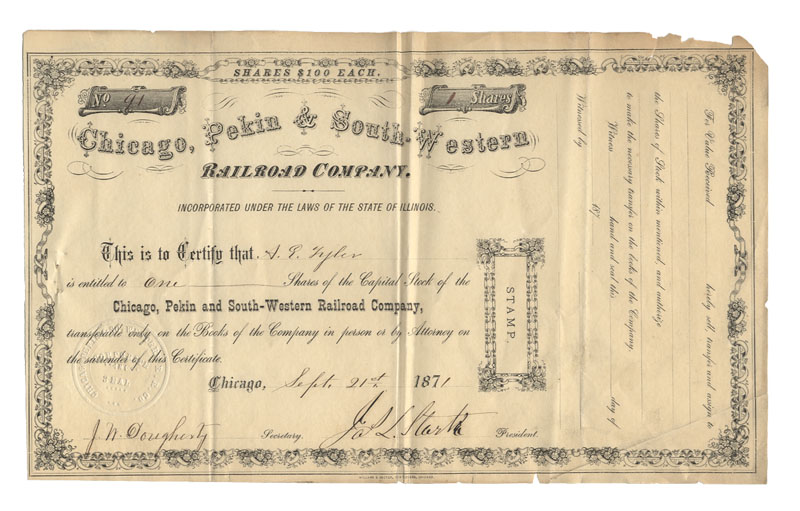 SHARES $100 EACH.
No 91
1 Shares
Chicago, Pekin & South-Western
RAILROAD COMPANY.
INCORPORATED UNDER THE LAWS OF THE STATE OF ILLINOIS.
This is to Certify that A. E. Tyler
is entitled to One Shares of the Capital Stock of the
Chicago, Pekin and South-Western Railroad Company,
transferable only on the Books of the Company in person or by Attorney on
the surrender of this Certificate.
Chicago, Sept. 21st, 1871
STAMP.
J. N. Dougherty Secretary.
Jas L. Stark President.
For Value Received hereby sell, transfer and assign to
the Shares of Stock within mentioned, and authorize
to make the necessary transfer on the books of the Company.
Witness hand and seal this day of
187
Witnessed by